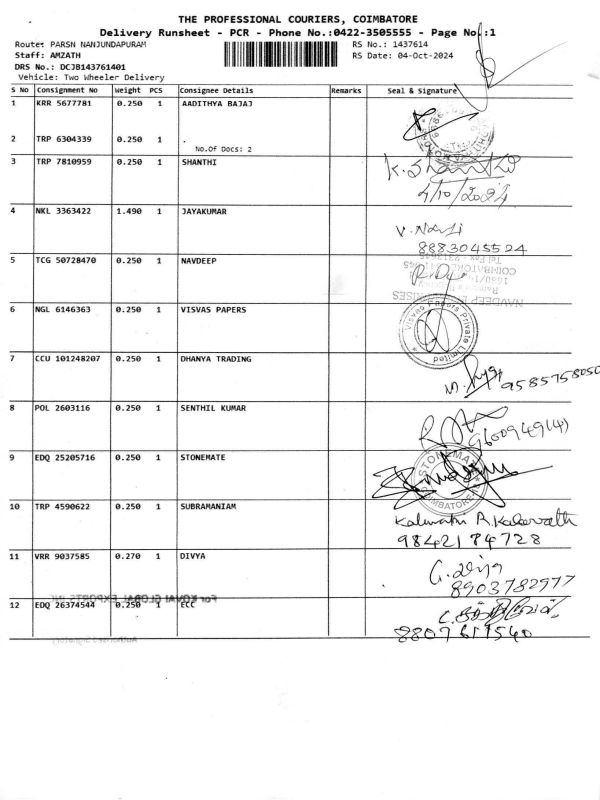 THE PROFESSIONAL COURIERS, COIMBATORE
Delivery Runsheet - PCR - Phone No.:0422-3505555 - Page No.:1
Route: PARSN NANJUNDAPURAM
RS No.: 1437614
Staff: AMZATH
RS Date: 04-Oct-2024
DRS No.: DCJB143761401
Vehicle: Two Wheeler Delivery
S No Consignment No Weight PCS Consignee Details Remarks Seal & Signature
1 KRR 5677781 0.250 1 AADITHYA BAJAJ
2 TRP 6304339 0.250 1 .
No.Of Docs: 2
3 TRP 7810959 0.250 1 SHANTHI
K. Shanthi
4/10/2024
4 NKL 3363422 1.490 1 JAYAKUMAR
8883045524
5 TCG 50728470 0.250 1 NAVDEEP
COIMBATORE
NAVDEEP
6 NGL 6146363 0.250 1 VISVAS PAPERS
Visvas Papers Private Limited
7 CCU 101248207 0.250 1 DHANYA TRADING
9585758050
8 POL 2603116 0.250 1 SENTHIL KUMAR
9 EDQ 25205716 0.250 1 STONEMATE
STONEMATE
COIMBATORE
10 TRP 4590622 0.250 1 SUBRAMANIAM
9842184728
11 VRR 9037585 0.270 1 DIVYA
8903782977
For KOVAI GLOBAL EXPORTS
12 EDQ 26374544 0.250 1 ECC
8807611540
Authorised Signatory